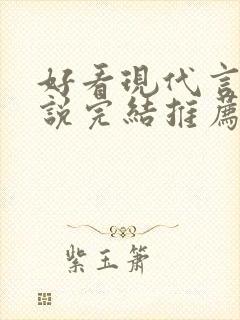 好看現代言
說完結推薦
紫玉簫